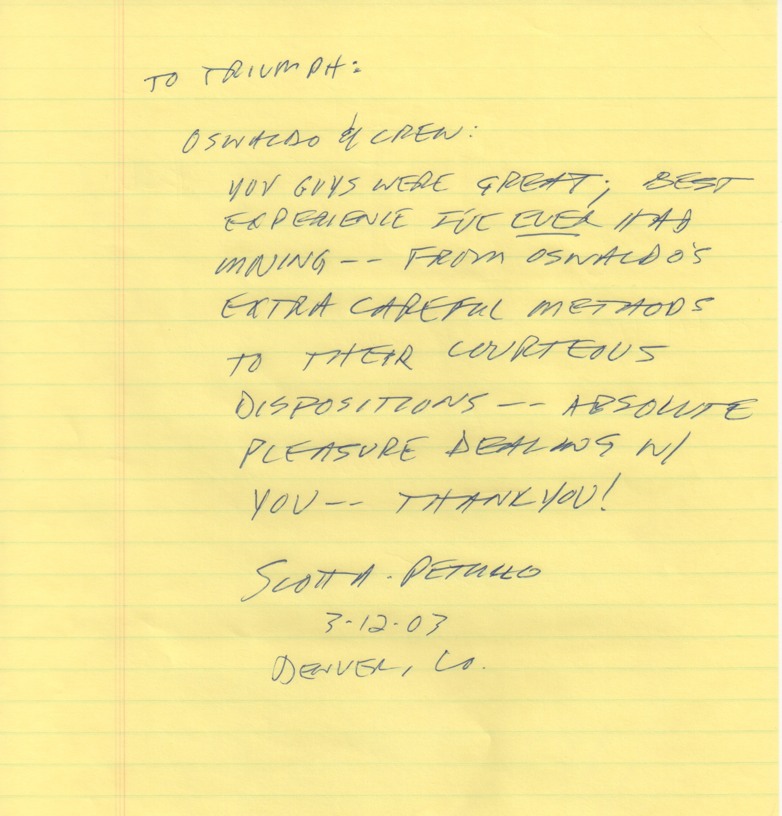 TO TRIUMPH:
OSWALDO & CREW:
YOU GUYS WERE GREAT; BEST
EXPERIENCE I'VE EVER HAD
MOVING -- FROM OSWALDO'S
EXTRA CAREFUL METHODS
TO THEIR COURTEOUS
DISPOSITIONS -- ABSOLUTE
PLEASURE DEALING W/
YOU -- THANK YOU!
SCOTT A. PETULLO
3-12-03
DENVER, CO.